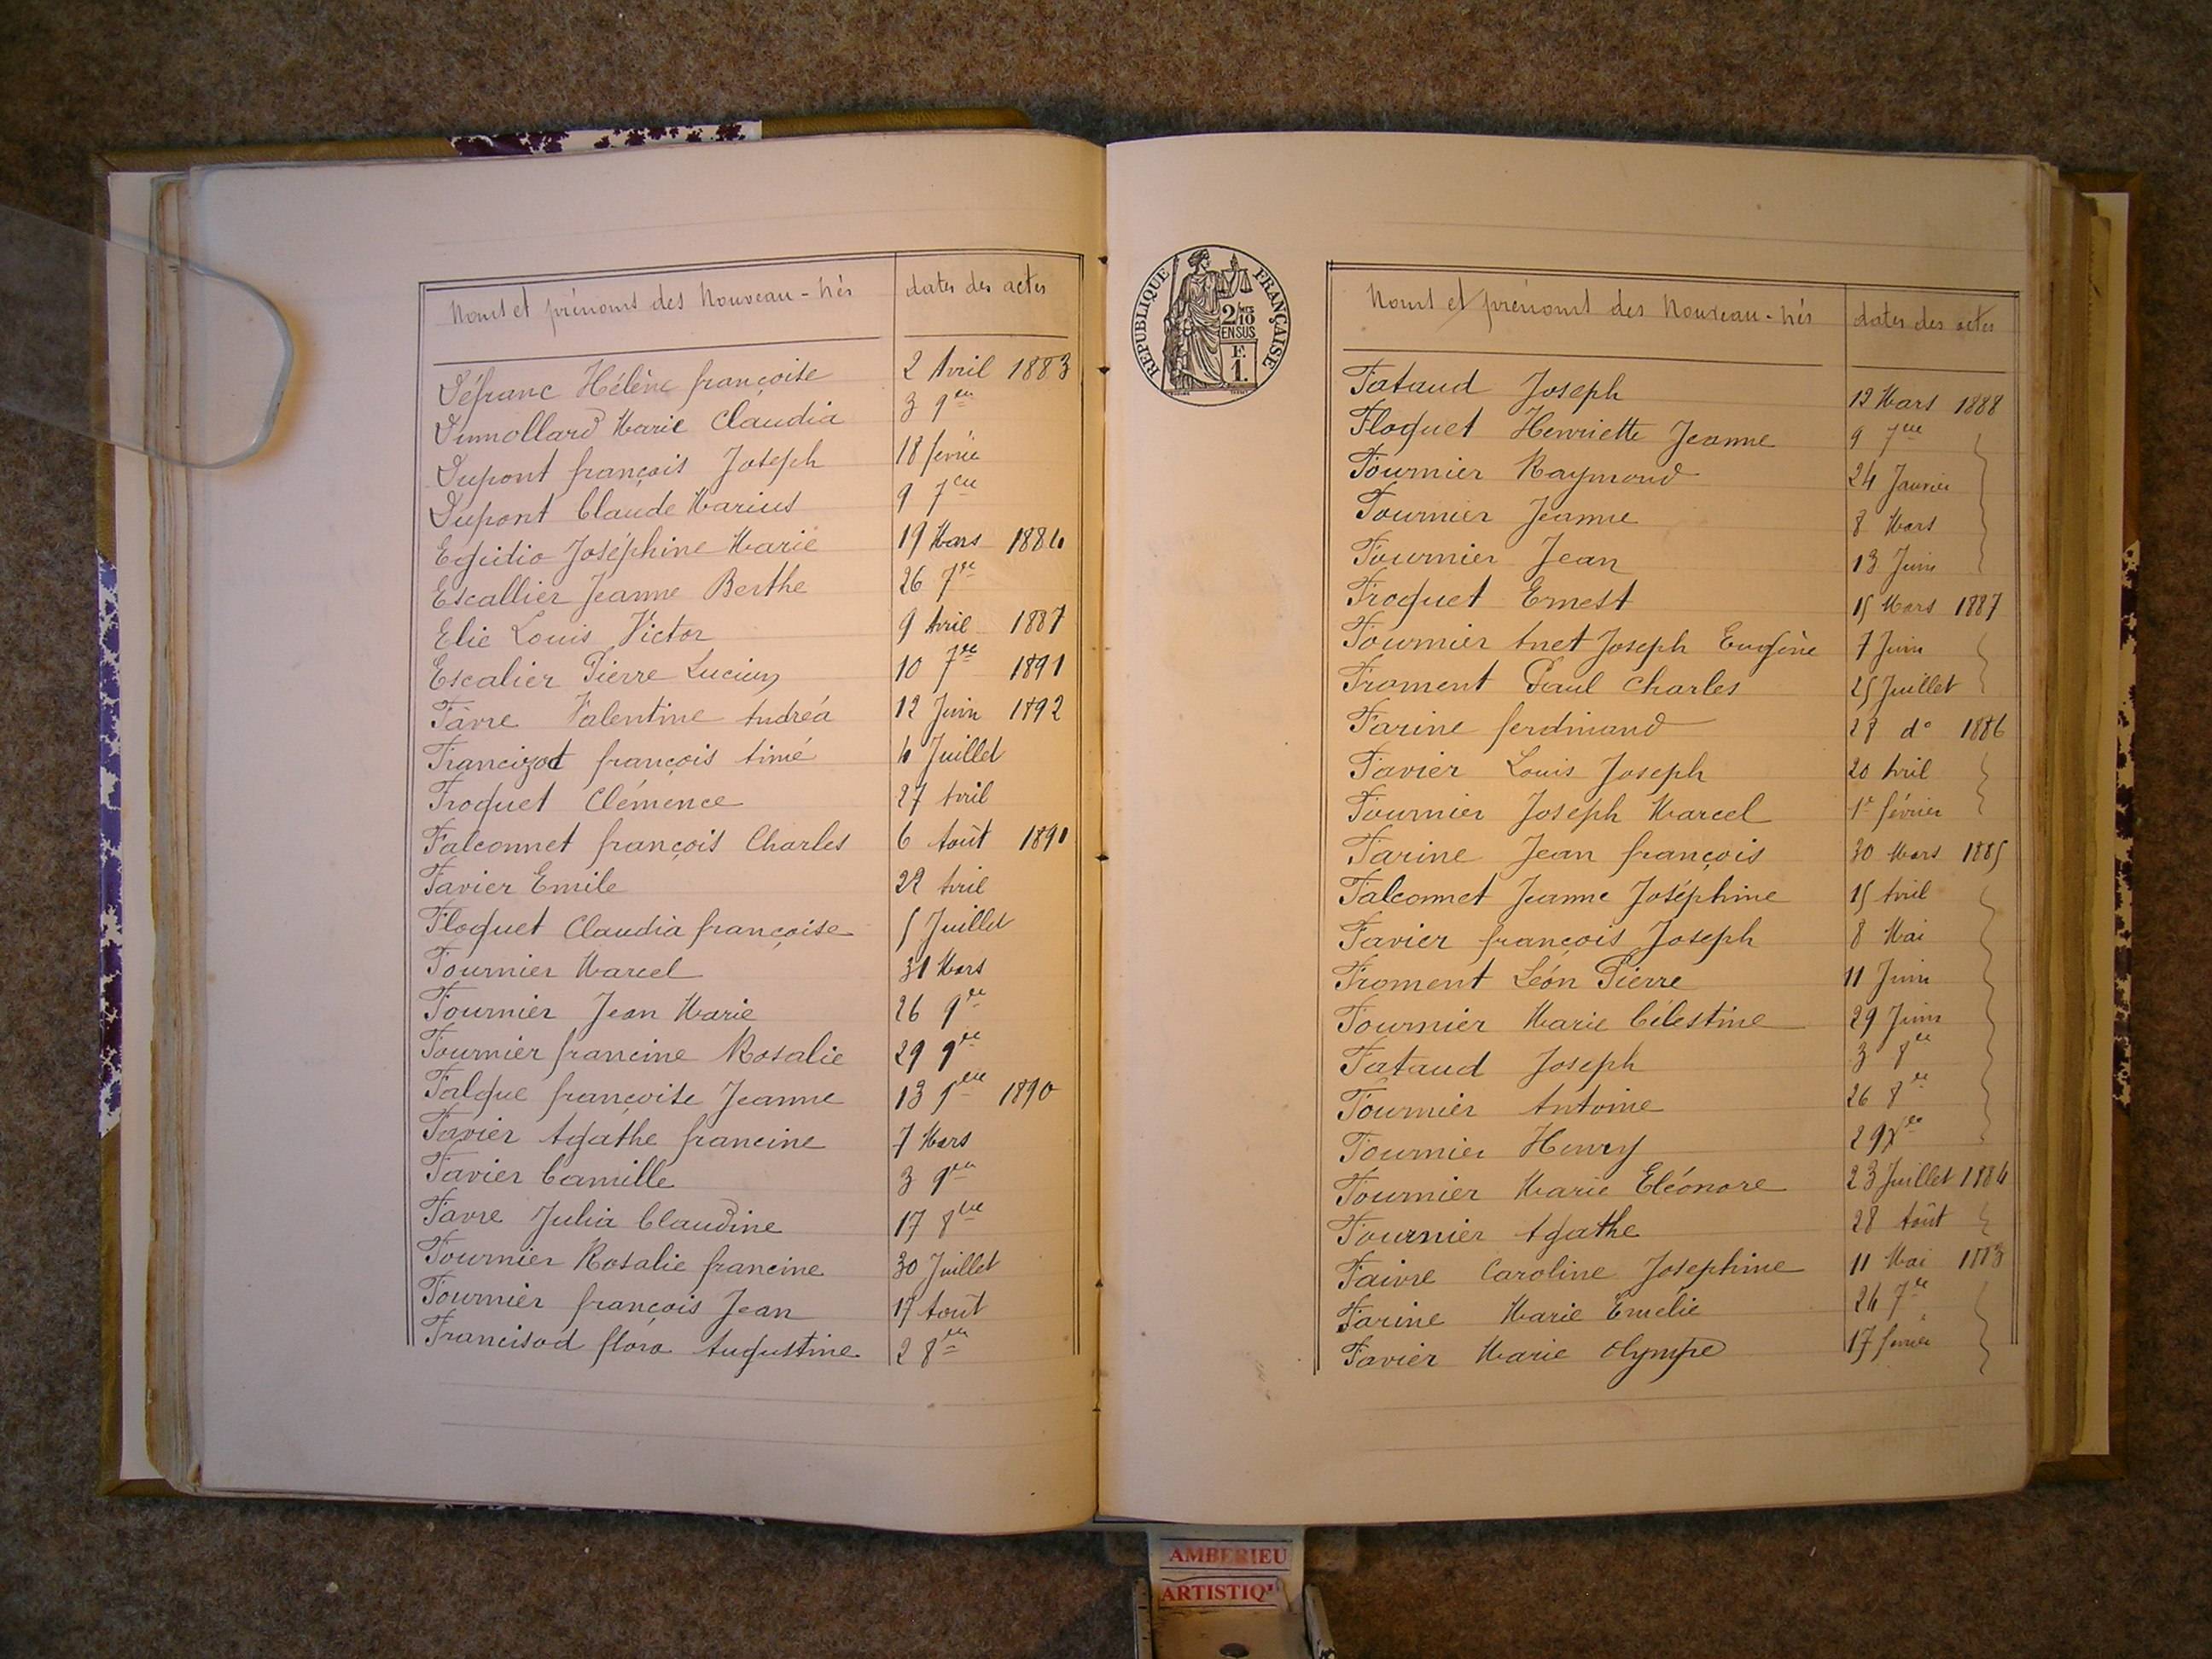 Noms et prénoms des Nouveau-nés dates des actes
Défranc Hélène françoise 2 Avril 1883
Dumollard Marie Claudia 3 9bre
Dupont françois Joseph 18 févrie
Dupont Claude Marius 9 7bre
Egidio Joséphine Marie 19 Mars 1884
Escallier Jeanne Berthe 26 7re
Elie Louis Victor 9 Avril 1887
Escalier Pierre Lucien 10 7re 1891
Favre Valentine Andréa 12 Juin 1892
Francizod françois Aimé 4 Juillet
Froquet Clémence 27 Avril
Falconnet françois Charles 6 Août 1891
Favier Emile 22 Avril
Floquet Claudia françoise 5 Juillet
Fournier Marcel 31 Mars
Fournier Jean Marie 26 9re
Fournier francine Rosalie 29 9re
Falque françoise Jeanne 13 9bre 1890
Favier Agathe francine 7 Mars
Favier Camille 3 9re
Favre Julia Claudine 17 8bre
Fournier Rosalie francine 30 Juillet
Fournier françois Jean 17 Août
Francisod flora Augustine 2 8re
REPUBLIQUE FRANÇAISE
2/10
EN SUS
F.
1.
Noms et prénoms des Nouveau-nés dates des actes
Fataud Joseph 12 Mars 1888
Floquet Henriette Jeanne 9 7bre
Fournier Raymond 24 Janvier
Fournier Jeanne 8 Mars
Fournier Jean 13 Juin
Froquet Ernest 15 Mars 1887
Fournier Anet Joseph Eugène 7 Juin
Froment Paul Charles 25 Juillet
Farine ferdinand 28 do 1886
Favier Louis Joseph 20 Avril
Fournier Joseph Marcel 1er février
Farine Jean françois 30 Mars 1885
Falconnet Jeanne Joséphine 15 Avril
Favier françois Joseph 8 Mai
Froment Léon Pierre 11 Juin
Fournier Marie Célestine 29 Juin
Fataud Joseph 3 8re
Fournier Antoine 26 8re
Fournier Henry 29 Xre
Fournier Marie Eléonore 23 Juillet 1884
Fournier Agathe 28 Août
Faivre Caroline Josephine 11 Mai 1883
Farine Marie Emelie 24 7re
Favier Marie Olympe 17 février
AMBERIEU
ARTISTIQU